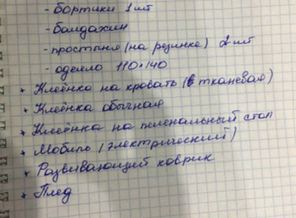 - бортики 1 шт
- Балдахин
- простыня (на резинке) 2 шт
- одеяло 110×140
* Клеёнка на кровать (в тканевая)
* Клеёнка обычная
* Клеёнка на пеленальный стол
* Мобиль (электрический)
* Развивающий коврик
* Плед